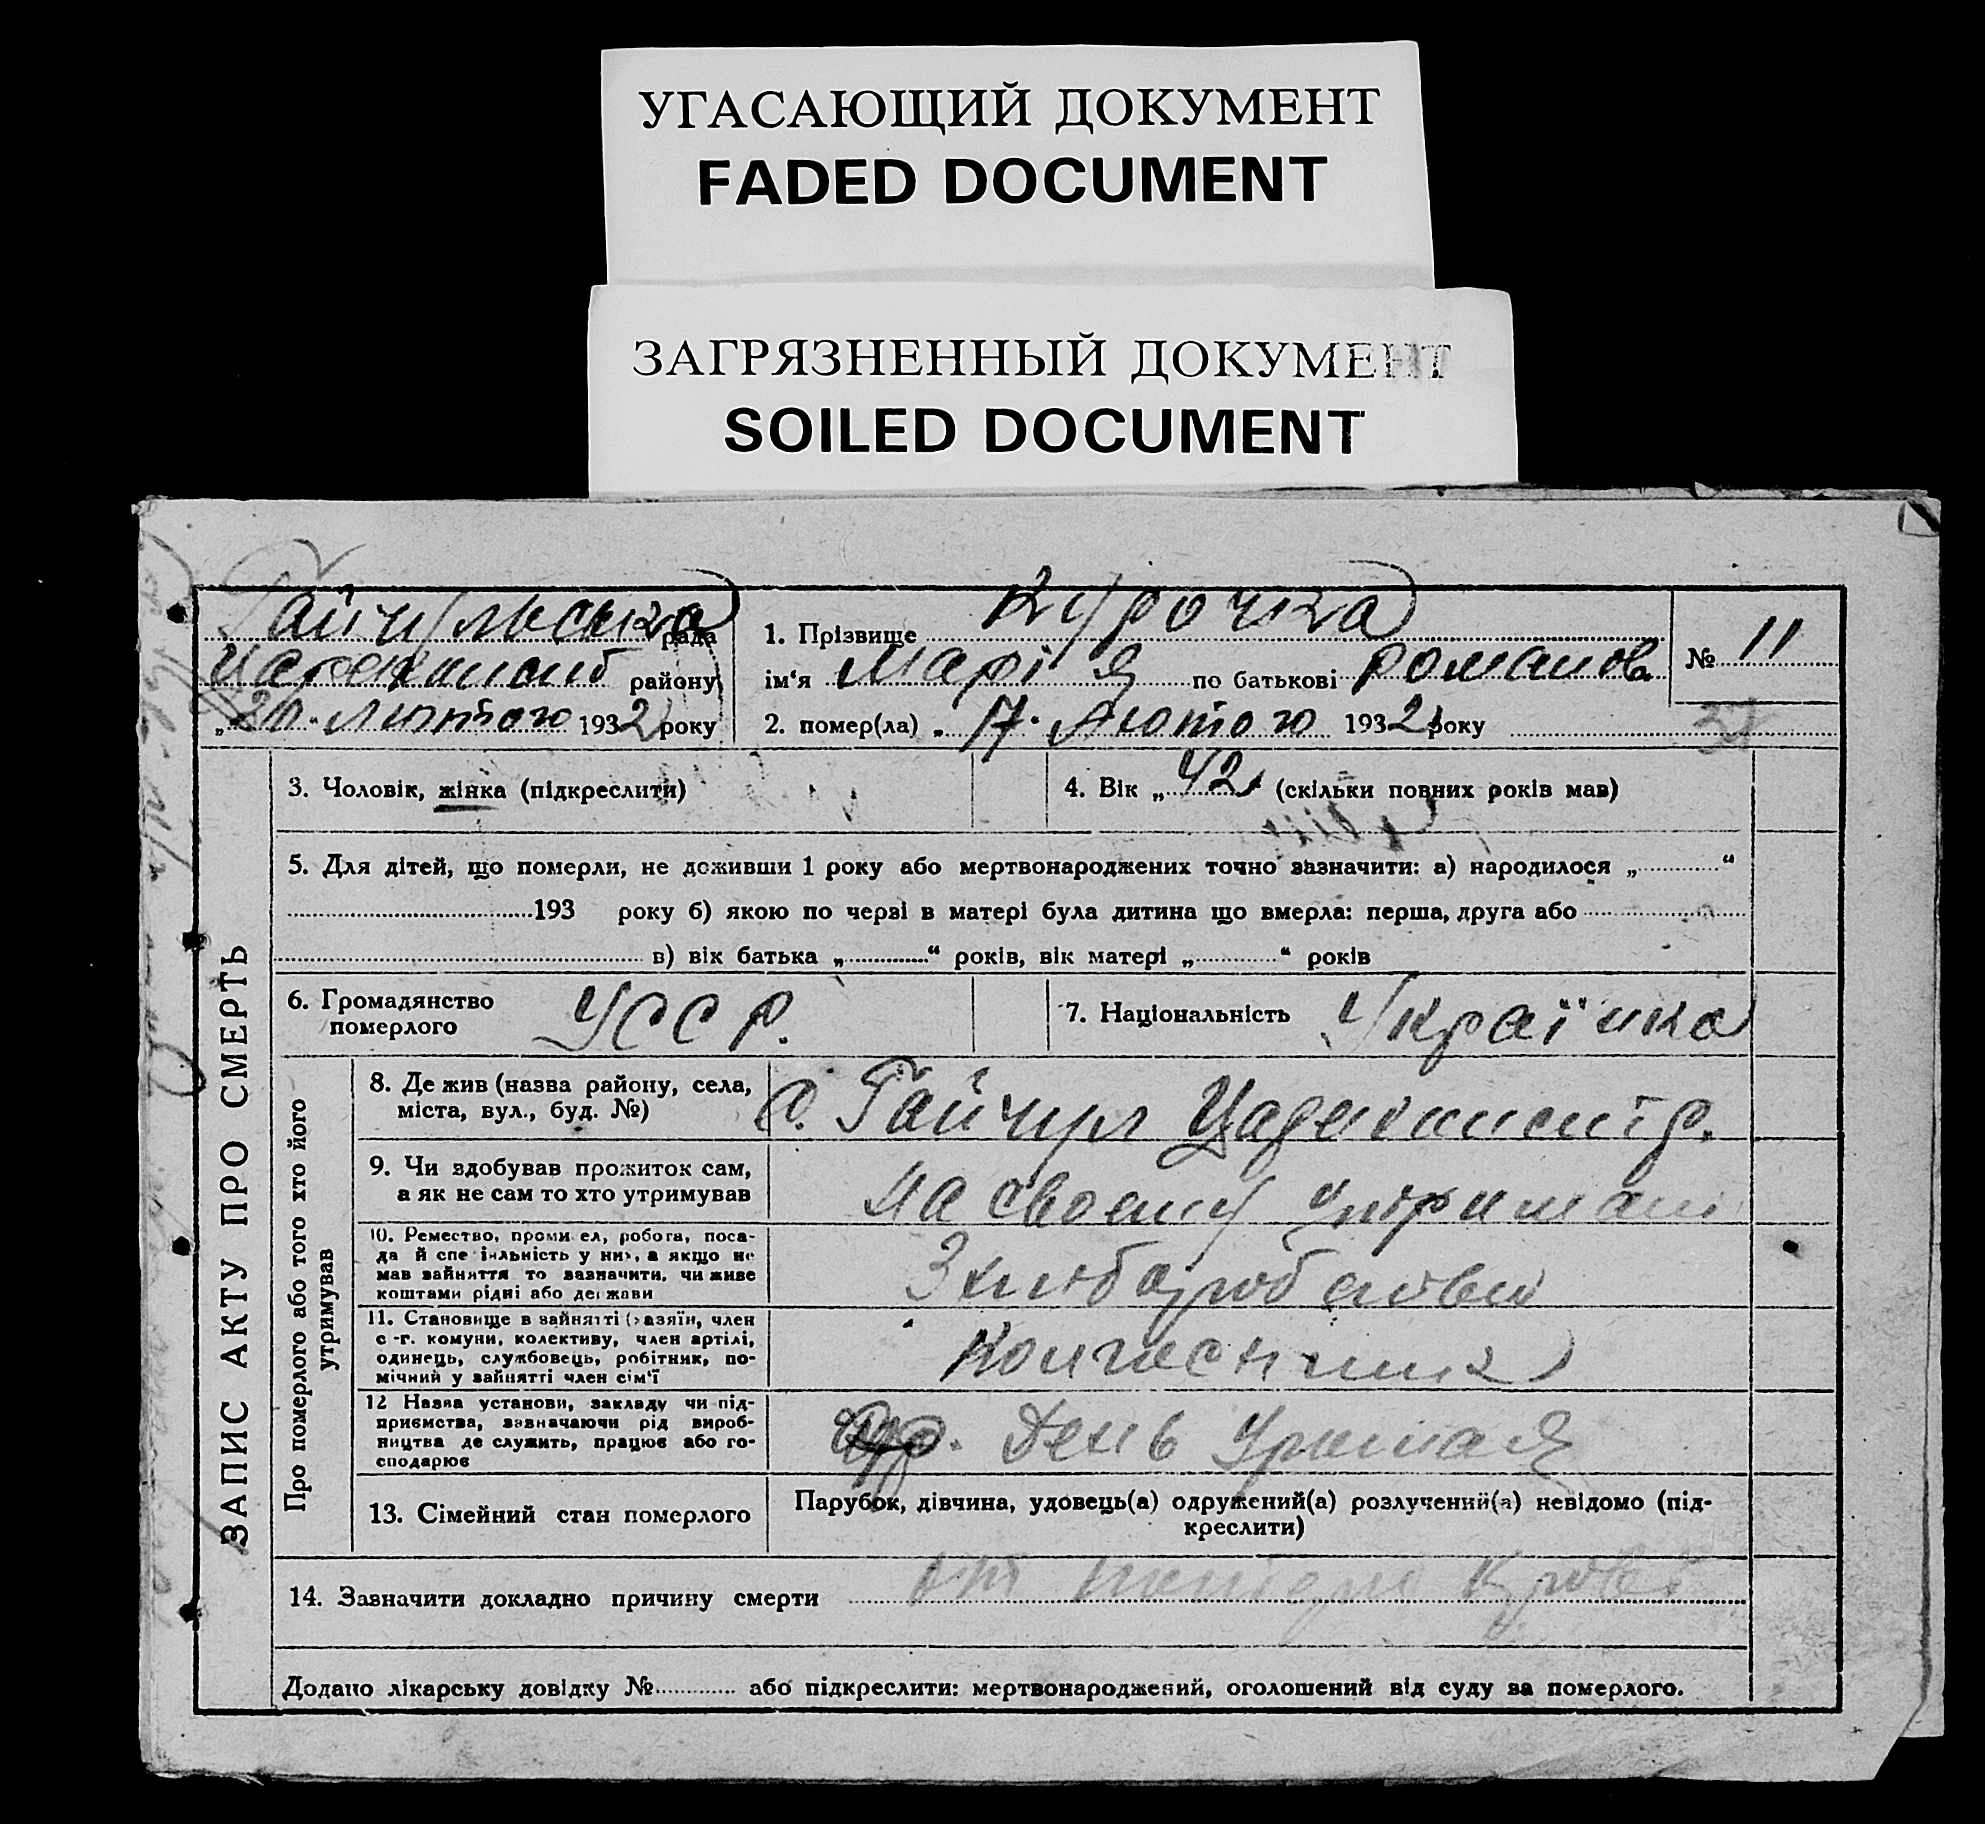 УГАСАЮЩИЙ ДОКУМЕНТ
FADED DOCUMENT
ЗАГРЯЗНЕННЫЙ ДОКУМЕНТ
SOILED DOCUMENT
Гайчульська рада
району
„20“ лютого 1932 року
1. Прізвище Курочка
ім‘я Марія по батькові Романов.
2. помер(ла) „17“ Лютого 1932 року
№ 11
ЗАПИС АКТУ ПРО СМЕРТЬ
3. Чоловік, жінка (підкреслити)
4. Вік „42“ (скільки повних років мав)
5. Для дітей, що померли, не доживши 1 року або мертвонароджених точно зазначити: а) народилося „ “
193 року б) якою по черзі в матері була дитина що вмерла: перша, друга або
в) вік батька „ “ років, вік матері „ “ років
6. Громадянство
померлого
УССР.
7. Національність Українка
Про померлого або того хто його
утримував
8. Де жив (назва району, села,
міста, вул., буд. №)
с. Гайчул
9. Чи здобував прожиток сам,
а як не сам то хто утримував
на своему утримані
10. Ремество, промисел, робота, поса-
да й спеціяльність у них, а якщо не
мав зайняття то зазначити, чи живе
коштами рідні або держави
З хліборобства
11. Становище в зайнятті (хазяїн, член
с.-г. комуни, колективу, член артілі,
одинець, службовець, робітник, по-
мічний у зайнятті член сім‘ї
Колгосниця
12 Назва установи, закладу чи під-
приємства, зазначаючи рід вироб-
ництва де служить, працює або го-
сподарює
День Урожая
13. Сімейний стан померлого
Парубок, дівчина, удовець(а) одружений(а) розлучений(а) невідомо (під-
креслити)
14. Зазначити докладно причину смерти от крові
Додано лікарську довідку № або підкреслити: мертвонароджений, оголошений від суду за померлого.